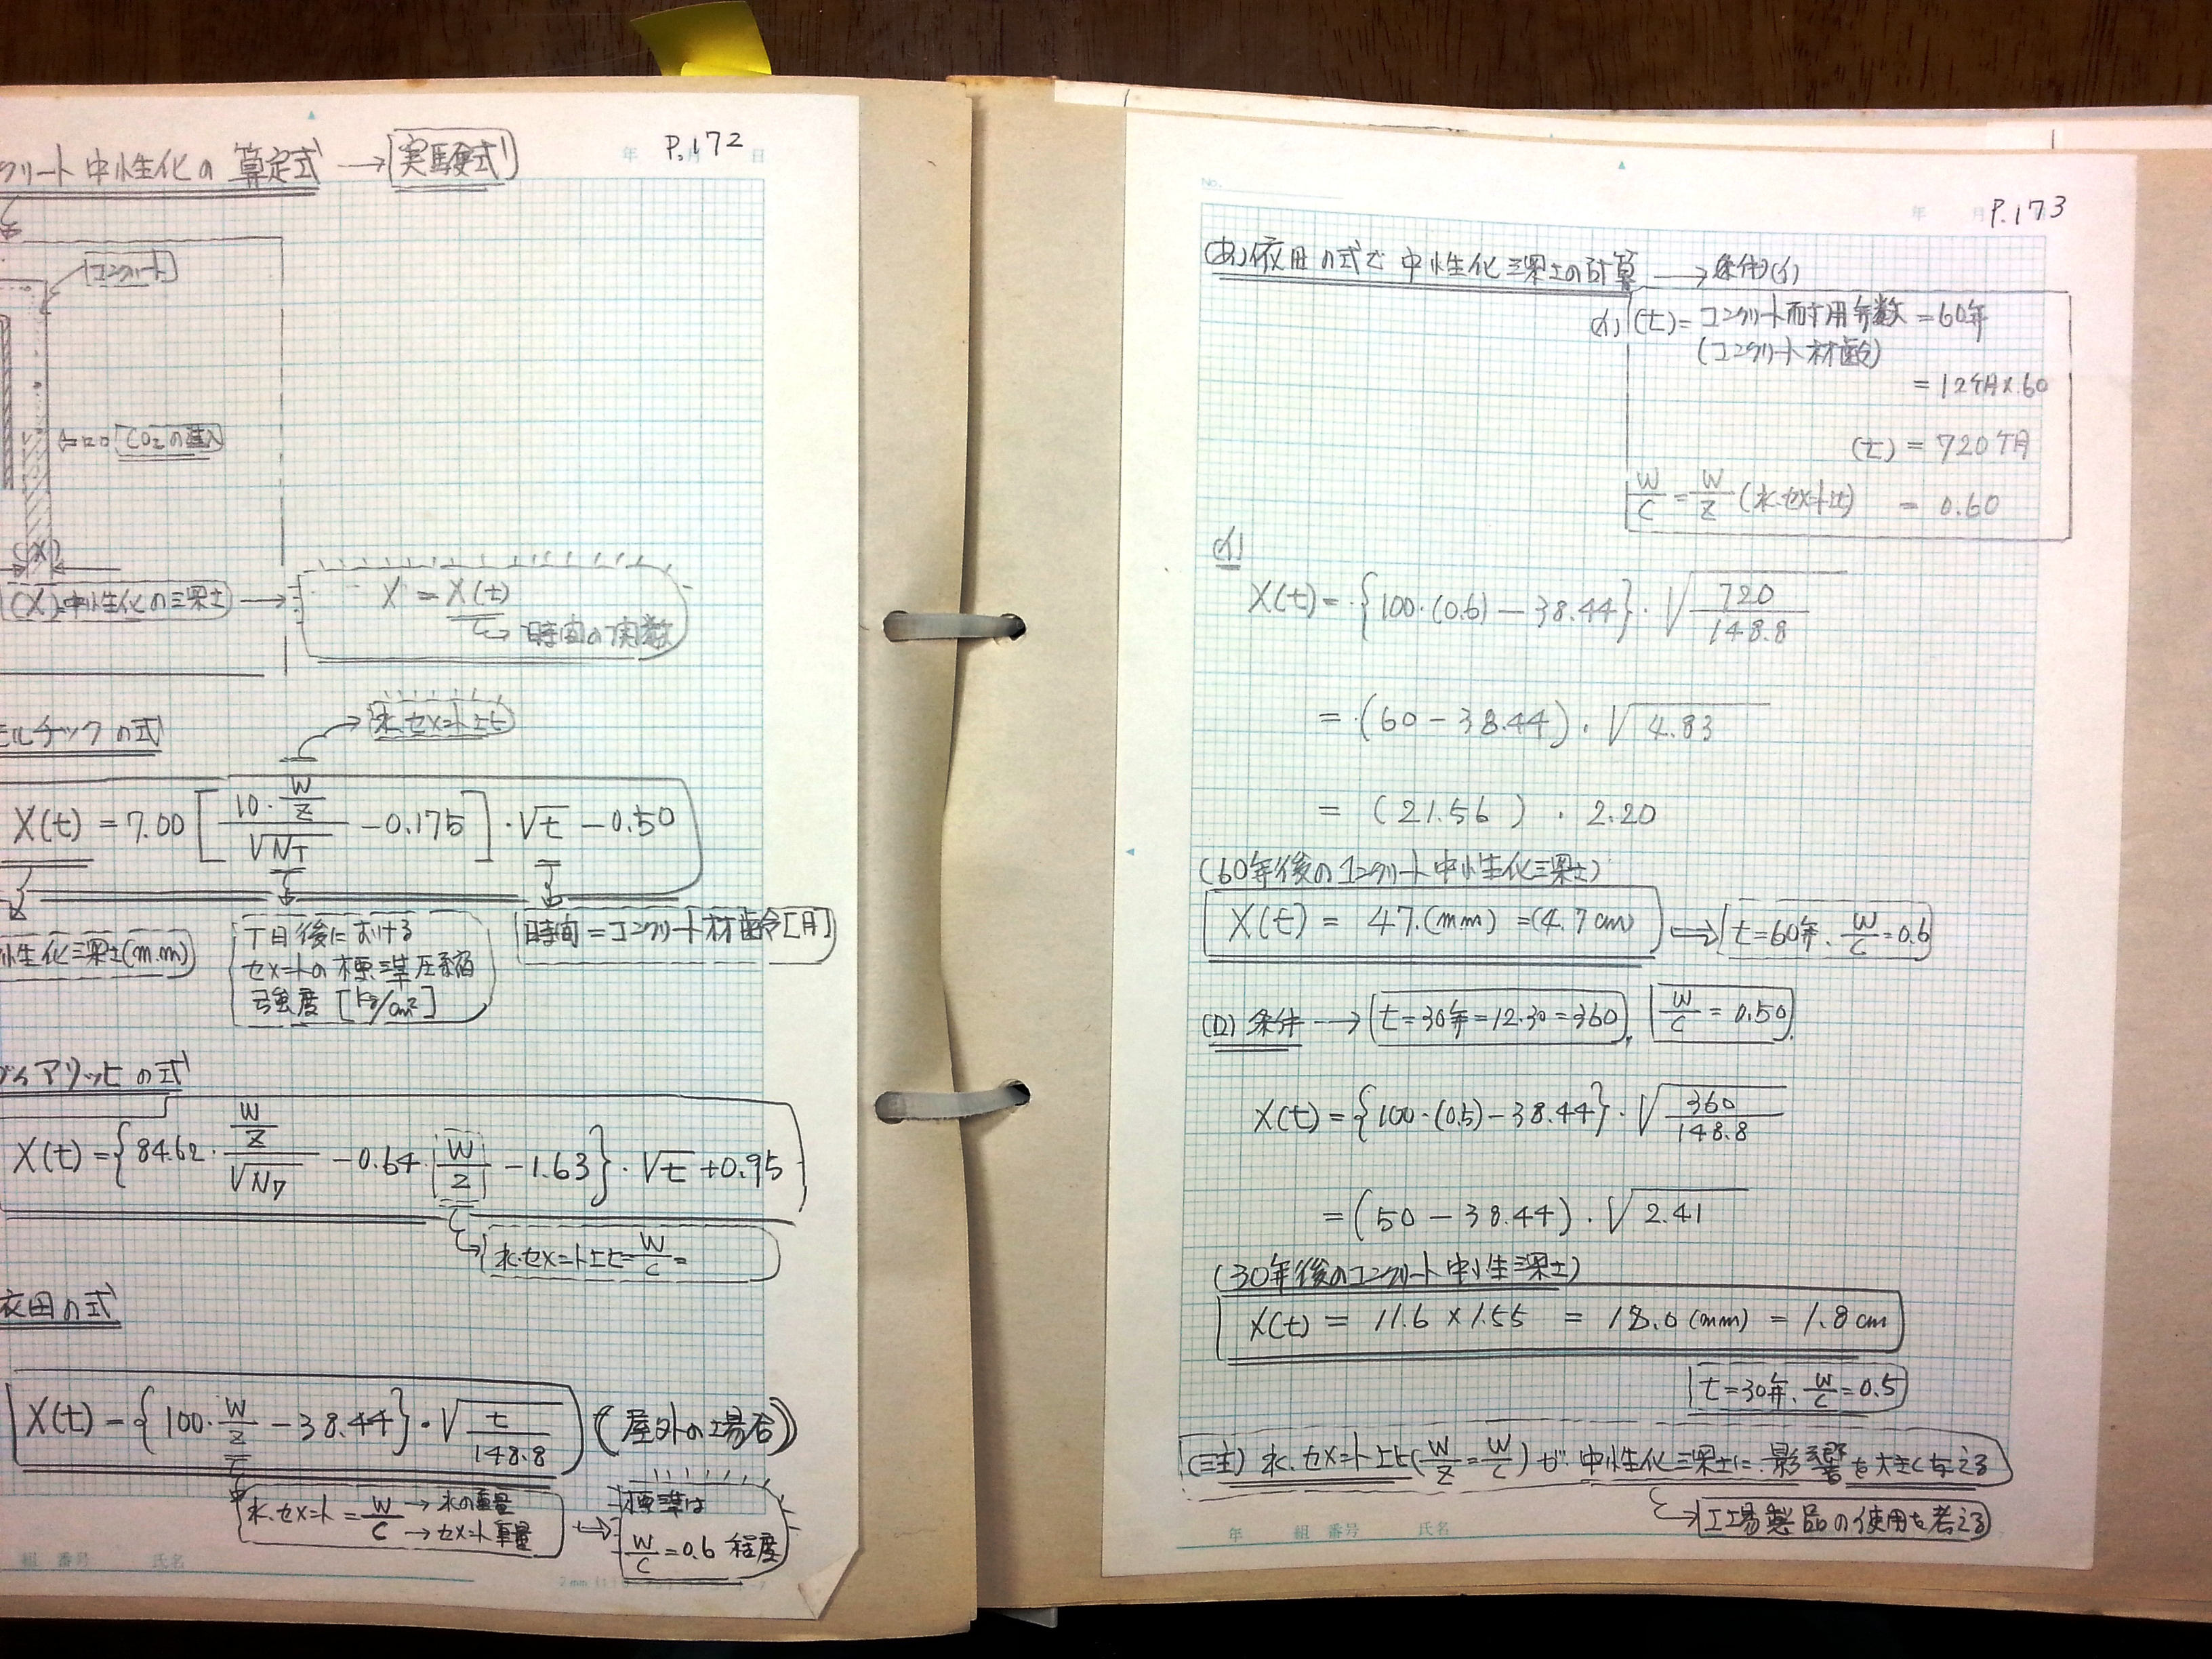 P.172
クリート中性化の算定式 → 実験式
コンクリート
CO2の進入
(X)
(X)=中性化の深さ → X = X(t)
時間の関数
モルチックの式
水.セメント比
X(t) = 7.00 [ 10・W/Z / √N7 - 0.175 ]・√t - 0.50
性化深さ(m.m)
7日後における
セメントの標準圧縮
強度 [kg/cm2]
時間=コンクリート材齢[月]
アリッヒの式
X(t) = { 84.62・W/Z / √N7 - 0.64・W/Z - 1.63 }・√t + 0.95
水.セメント比=W/C=
依田の式
X(t) = { 100・W/Z - 38.44 }・√t/148.8 (屋外の場合)
水.セメント=W/C → 水の重量 → セメント重量
標準は
W/C=0.6 程度
組 番号 氏名
No.
年 月 P.173
(あ)依田の式で中性化深さの計算 → 条件(イ)
(イ) (t)=コンクリート耐用年数=60年
(コンクリート材齢)
=12ヶ月×60
(t) = 720ヶ月
W/C = W/Z (水.セメント比) = 0.60
(イ)
X(t) = {100・(0.6) - 38.44}・√720/148.8
= (60 - 38.44)・√4.83
= (21.56)・2.20
(60年後のコンクリート中性化深さ)
X(t) = 47.(mm) = (4.7cm) ⇒ t=60年. W/C=0.6
(ロ) 条件 → t=30年=12.30=360, W/C = 0.50
X(t) = {100・(0.5) - 38.44}・√360/148.8
= (50 - 38.44)・√2.41
(30年後のコンクリート中性深さ)
X(t) = 11.6 × 1.55 = 18.0 (mm) = 1.8cm
t=30年. W/C=0.5
(注) 水.セメント比(W/Z=W/C)が中性化深さに影響を大きく与える
工場製品の使用を考える
年 組 番号 氏名